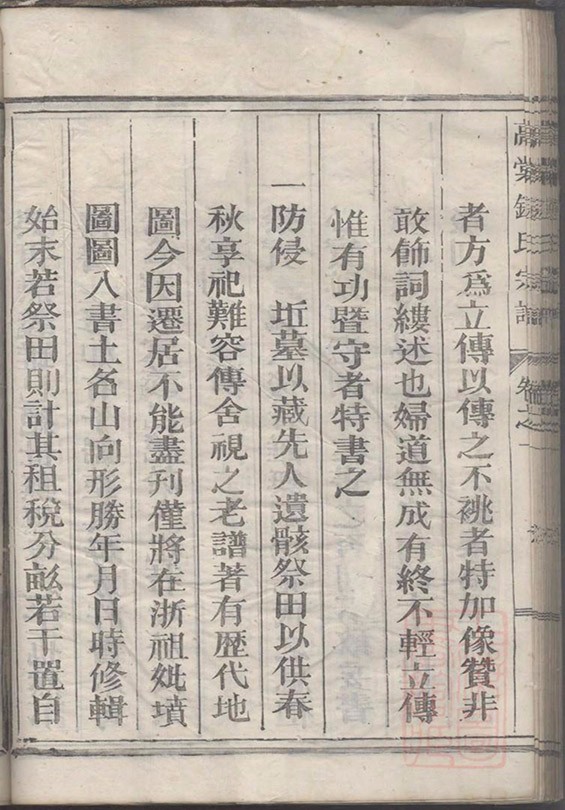 高棠錢氏宗譜 卷之
者方爲立傳以傳之不祧者特加像贊非
敢飾詞縷述也婦道無成有終不輕立傳
惟有功暨守者特書之
一防侵 坵墓以藏先人遺骸祭田以供春
秋享祀難容傳舍視之老譜著有歷代地
圖今因遷居不能盡刊僅將在浙祖妣墳
圖圖入書土名山向形勝年月日時修輯
始末若祭田則計其租稅分畝若干置自